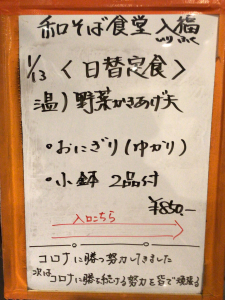 和そば食堂 入福
いりふく
1/13 〈日替定食〉
温)野菜かきあげ天
・おにぎり(ゆかり)
・小鉢 2品付
¥850-
入口こちら
コロナに勝つ努力してきました
次は
コロナに勝ち続ける努力を皆で頑張る